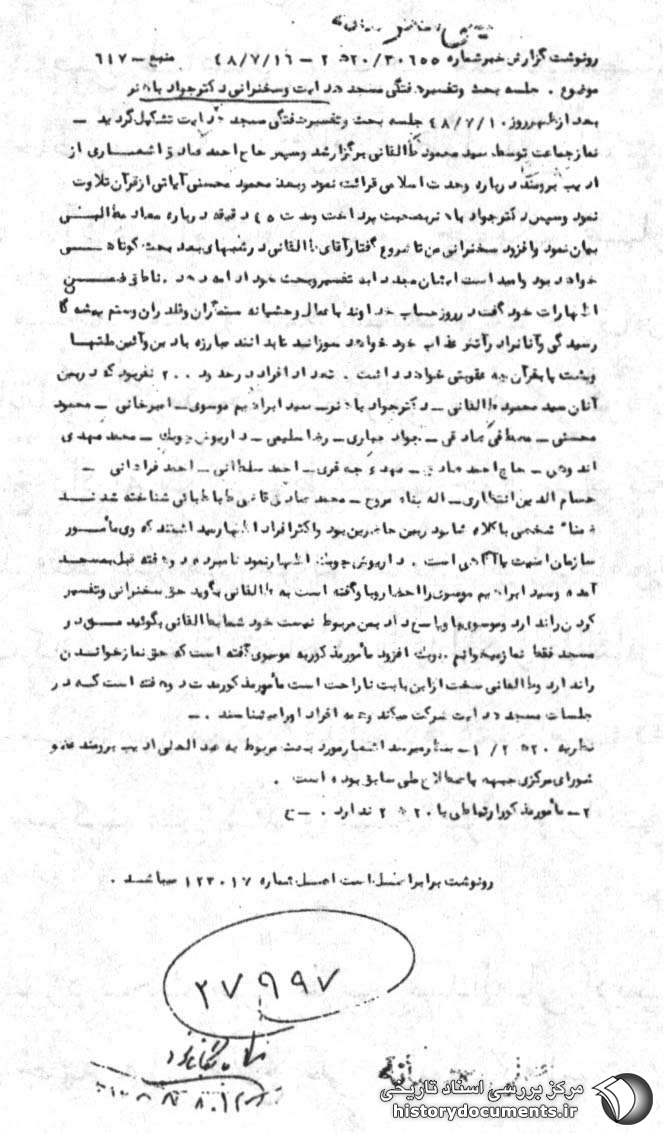 رونوشت گزارش خبر شماره ۲۰/۳۰۶۵۵ ه ۲ - ۴۸/۷/۱۶ منبع - ۶۱۷
موضوع . جلسه بحث وتفسیر هفتگی مسجد هدایت وسخنرانی دکتر جواد باهنر
بعد از ظهر روز ۴۸/۷/۱۰ جلسه بحث وتفسیر هفتگی مسجد هدایت تشکیل گردید -
نماز جماعت توسط سید محمود طالقانی برگزار شد وسپس حاج احمد صادق اشعاری از
ادیب برومند درباره وحدت اسلامی قرائت نمود وبعد محمود محسنی آیاتی از قرآن تلاوت
نمود وسپس دکتر جواد باهنر بصحبت پرداخت ومدت ۴۵ دقیقه درباره معاد مطالبی
بیان نمود وافزود سخنرانی من تا شروع گفتار آقای طالقانی در شبهای بعد بحث کوتاهی
خواهد بود وامید است ایشان مجددا به تفسیر وبحث خود ادامه دهد . ناطق ضمن
اظهارات خود گفت در روز حساب خداوند باعمال وحشیانه ستمگران وقلدران وستم پیشه گا
رسیدگی وآنانرا در آتش عذاب خود خواهد سوزانید تا بدانند مبارزه با دین وآئین ملتها
وپشت پا بقرآن چه عقوبتی خواهد داشت . تعداد افراد در حدود ۲۰۰ نفر بود که در بین
آنان سید محمود طالقانی - دکتر جواد باهنر - سید ابراهیم موسوی - امیرخانی - محمود
محسنی - مصطفی صادقی - جواد جباری - رضا سلیمی - داریوش چوبک - محمد مهدی
- حاج احمد صادق - مهدی جعفری - احمد سلطانی - احمد فراهانی -
حسام الدین انتظاری - اله بنده مروج - محمد صادق قاضی طباطبائی شناخته شدند
ضمنا شخصی با کلاه شاپو در بین حاضرین بود واکثر افراد اظهار میداشتند که وی مأمور
سازمان امنیت یا آگاهی است . داریوش چوبک اظهار نمود نامبرده دو هفته قبل بمسجد
آمده وسید ابراهیم موسوی را احضار وباو گفته است به طالقانی بگوید حق سخنرانی وتفسیر
کردن را ندارد وموسوی باو پاسخ داد بمن مربوط نیست خود شما بطالقانی بگوئید من در
مسجد فقط نماز میخوانم . چوبک افزود مأمور مذکور به موسوی گفته است که حق نماز خواندن
را ندارد وطالقانی سخت از این بابت ناراحت است مأمور مذکور مدت دو هفته است که در
جلسات مسجد هدایت شرکت میکند وهمه افراد او را میشناسند . -
نظریه ۲۰ ه ۲ / ۱ - بنظر میرسد اشعار مورد بحث مربوط به عبدالعلی ادیب برومند عضو
شورای مرکزی جبهه باصطلاح ملی سابق بوده است .
۲ - مأمور مذکور ارتباطی با ۲۰ ه ۲ ندارد . - ح
رونوشت برابر اصل است اصل شماره ۱۲۳۰۱۷ میباشد .
۲۷۹۹۷
مرکز بررسی اسناد تاریخی
historydocuments.ir